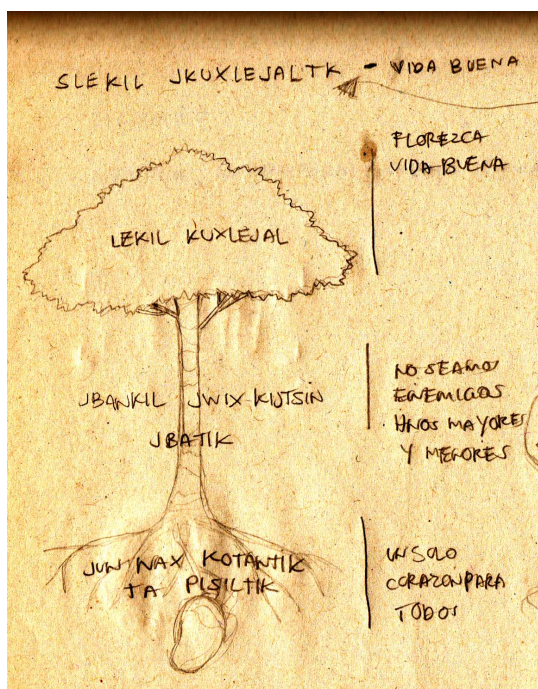 SLEKIL JKUXLEJALTK - VIDA BUENA
FLOREZCA
VIDA BUENA
LEKIL KUXLEJAL
JBANKIL JWIX-KIJTSIN
JBATIK
NO SEAMOS
ENEMIGOS
HNOS MAYORES
Y MENORES
JUN NAX KOTANTIK
TA PISILTIK
UN SOLO
CORAZON PARA
TODOS